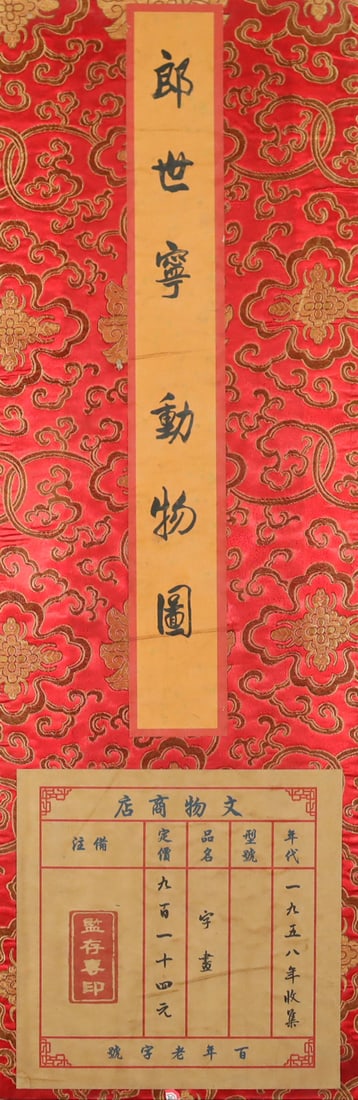 郎世寧動物圖
文物商店
年代
一九五八年收集
型號
品名
字畫
定價
九百一十四元
備注
監存專印
百年老字號